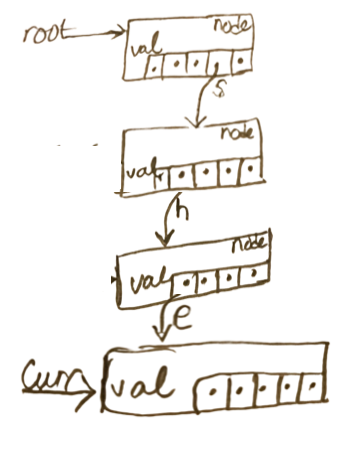 root
node
val
s
node
val
h
node
val
e
Curr
val